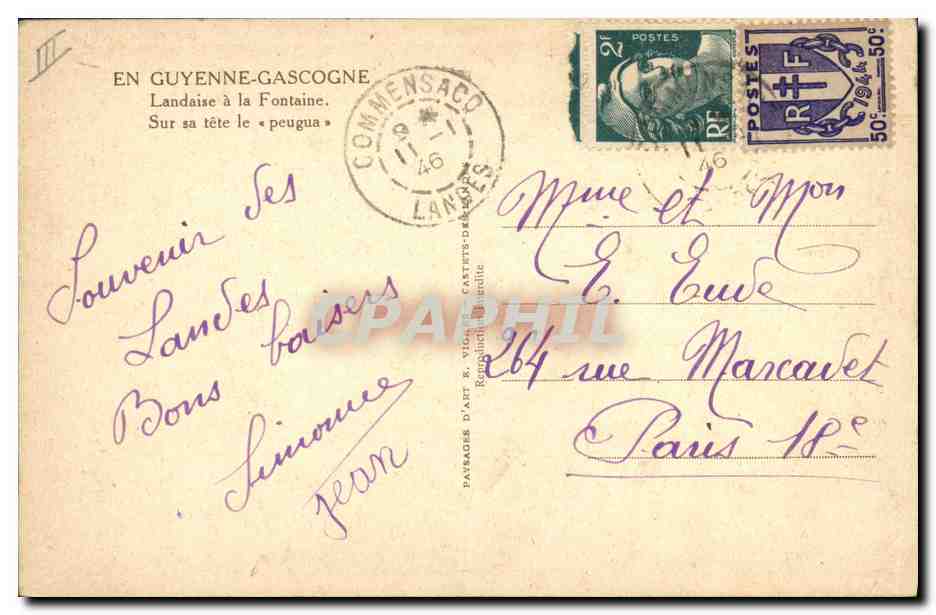 III
EN GUYENNE-GASCOGNE
Landaise à la Fontaine.
Sur sa tête le « peugua »
COMMENSACQ
9 *
11 -1
46
LANDES
POSTES
2F
RF
POSTES
RF
1944
50c
50c
11
46
Souvenir des
Landes
Bons baisers
Simonne
Jean
PAYSAGES D'ART R. VIGNES - CASTETS-DES-LANDES
Reproduction interdite
Mme et Mon
E. Eude
264 rue Marcadet
Paris 18e
CPAPHIL